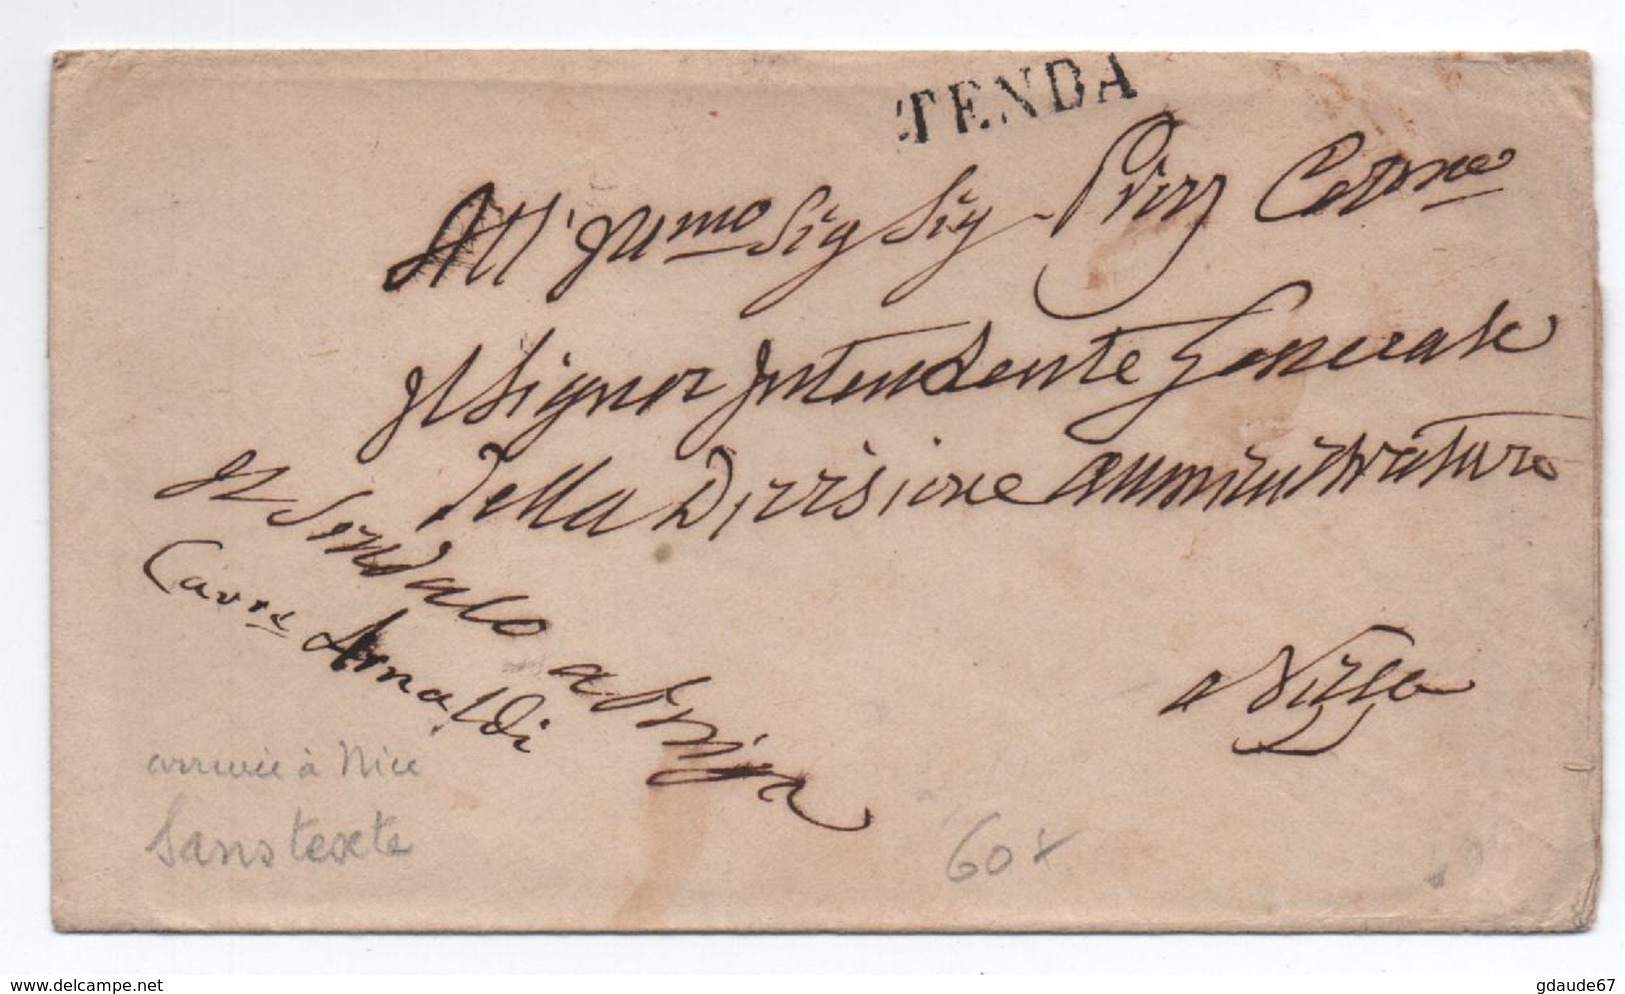 TENDA
All'Illmo Sig Sig Prne Colmo
Il Signor Intendente Generale
della Divisione amministrativa
a Nizza
Il Sindaco a Briga
Cavre Arnaldi
arrivée à Nice
Sans texte
60
delcampe.net
gdaude67